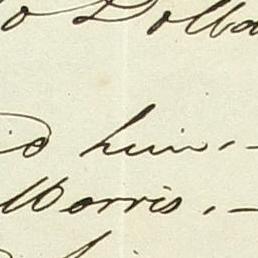 o Dolba
id him. -
Morris. -